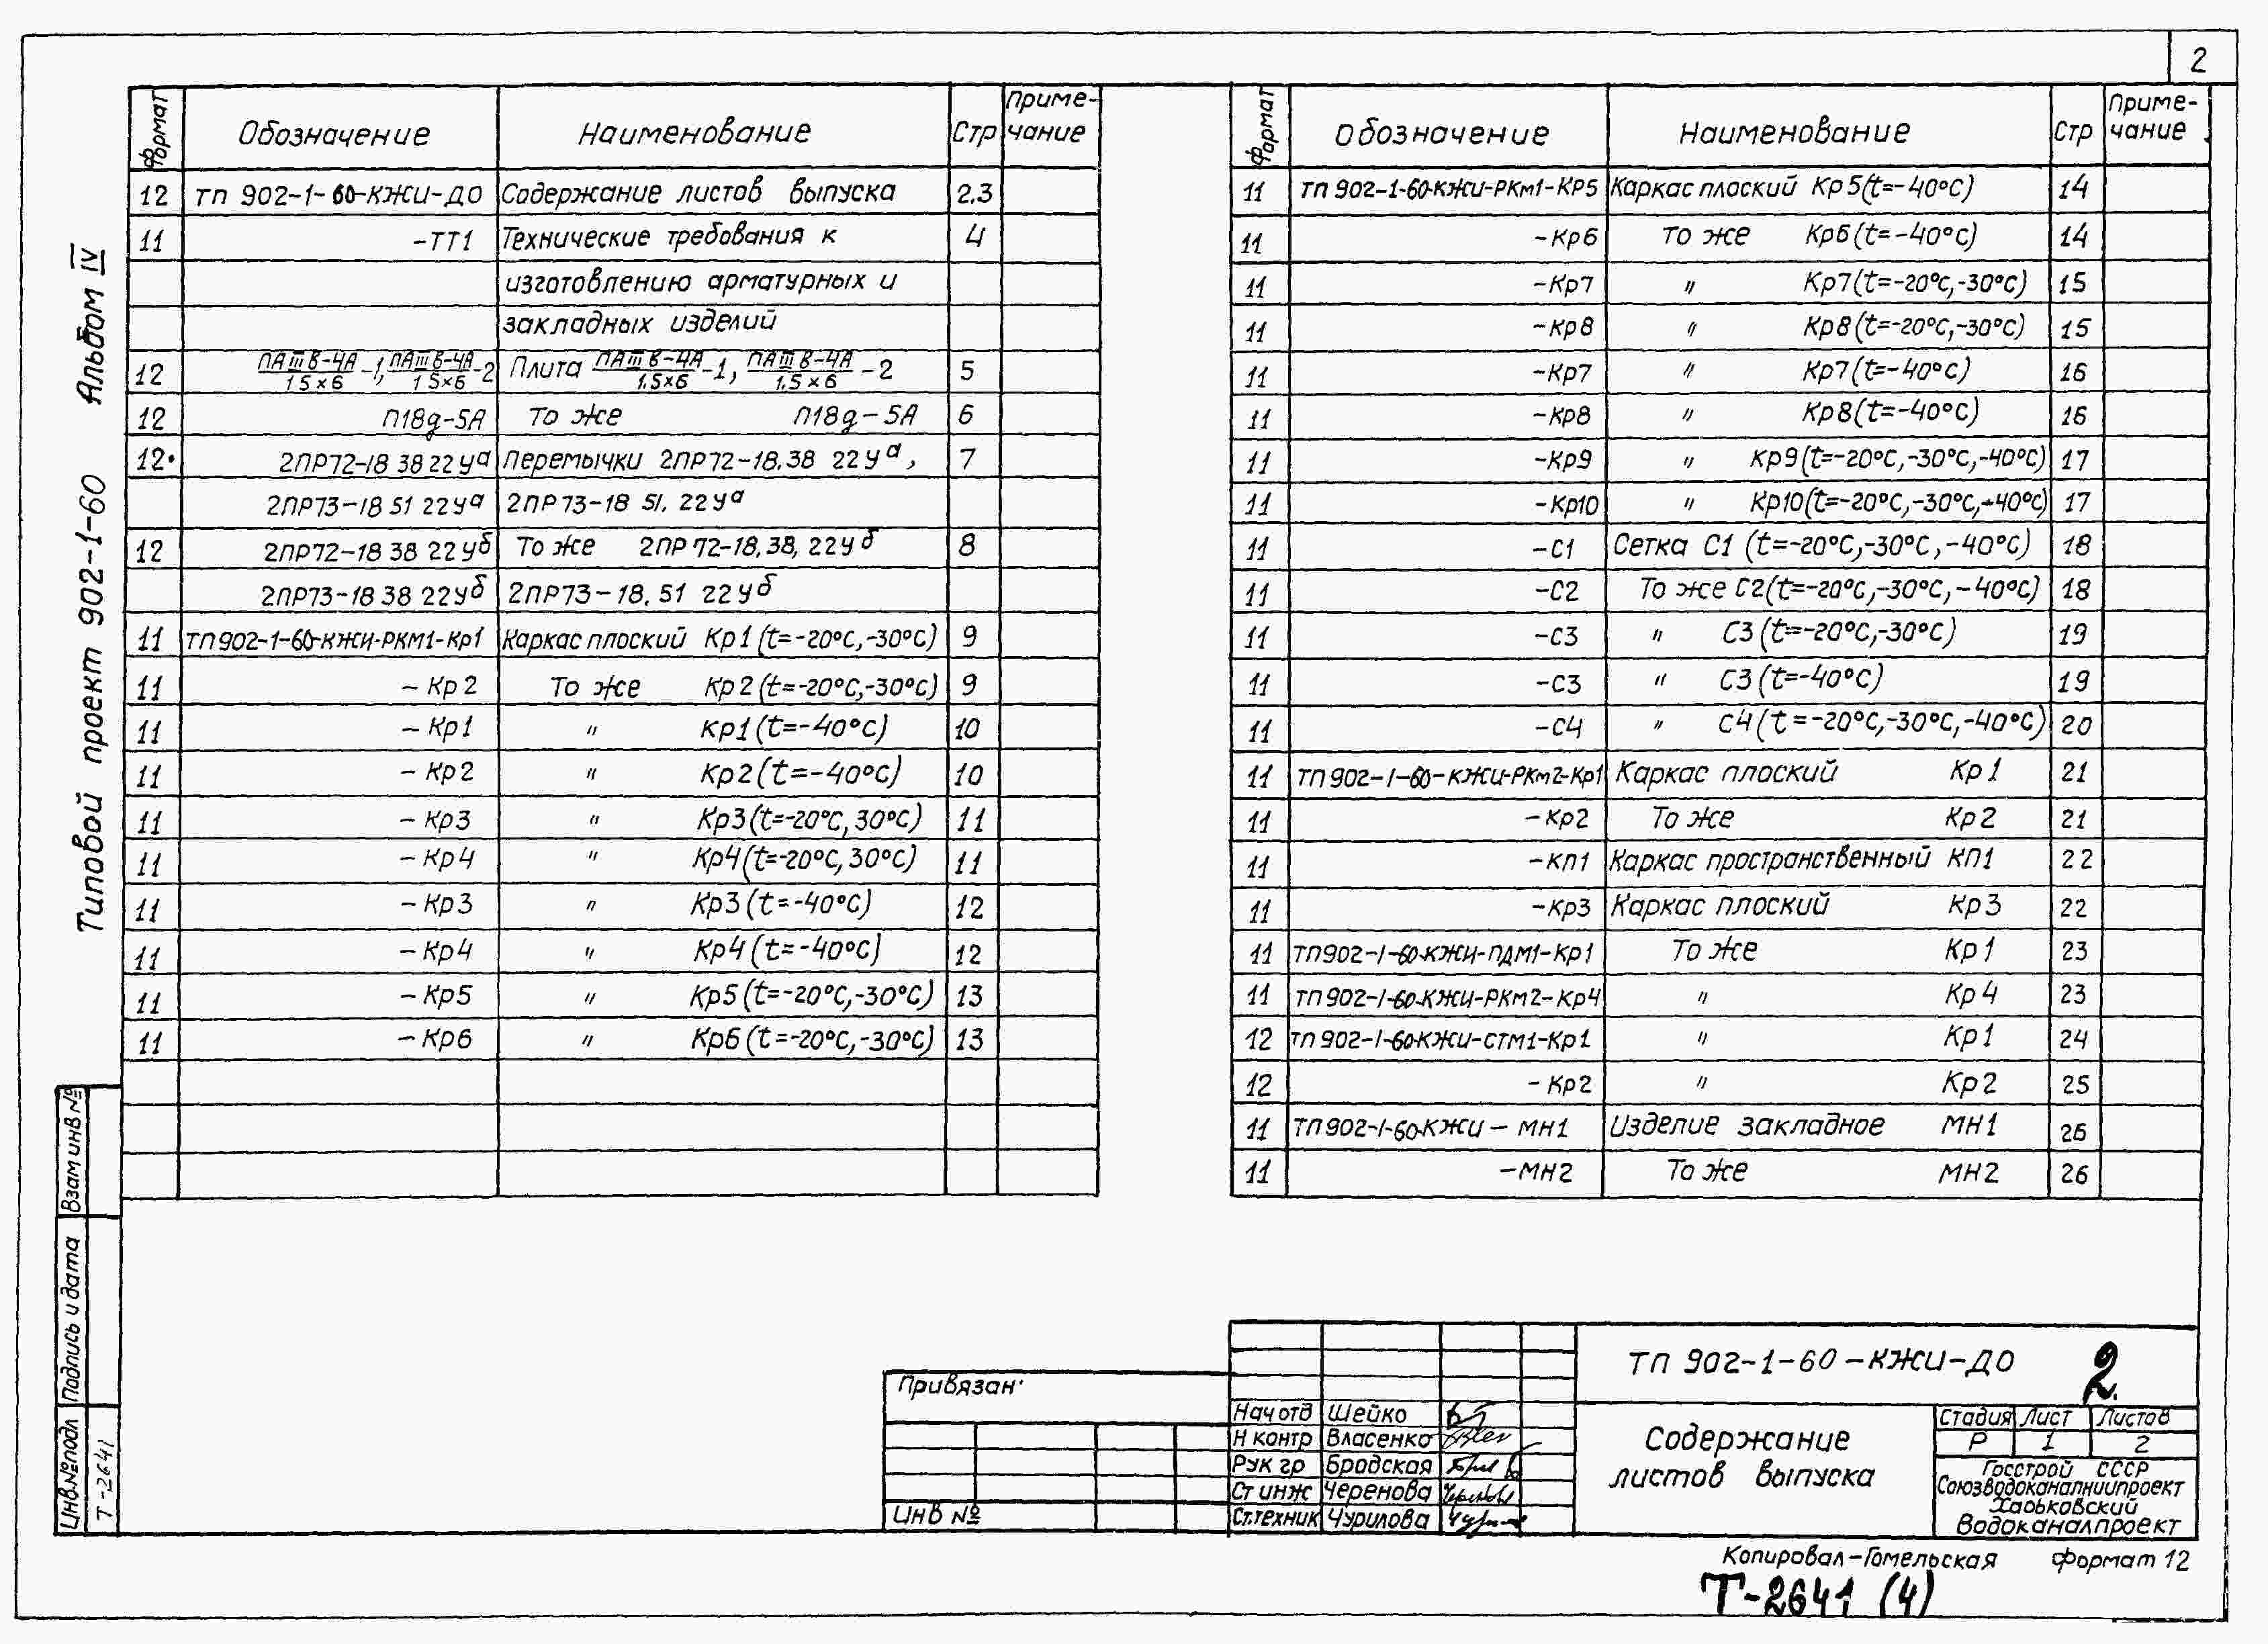 2
Типовой проект 902-1-60 Альбом IV
Формат Обозначение Наименование Стр Приме-чание
12 ТП 902-1-60-КЖИ-ДО Содержание листов выпуска 2,3
11 -ТТ1 Технические требования к 4
изготовлению арматурных и
закладных изделий
12 ПАIIIв-4А/1.5×6-1, ПАIIIв-4А/1.5×6-2 Плита ПАIIIв-4А/1,5×6-1, ПАIIIв-4А/1,5×6-2 5
12 П18д-5А То же П18д-5А 6
12 2ПР72-18 38 22Уа Перемычки 2ПР72-18.38 22Уа, 7
2ПР73-18 51 22Уа 2ПР73-18 51. 22Уа
12 2ПР72-18 38 22Уб То же 2ПР72-18,38, 22Уб 8
2ПР73-18 38 22Уб 2ПР73-18. 51 22Уб
11 ТП902-1-60-КЖИ-РКМ1-Кр1 Каркас плоский Кр1 (t=-20°С,-30°С) 9
11 -Кр2 То же Кр2 (t=-20°С,-30°С) 9
11 -Кр1 " Кр1 (t=-40°С) 10
11 -Кр2 " Кр2 (t=-40°С) 10
11 -Кр3 " Кр3 (t=-20°С, 30°С) 11
11 -Кр4 " Кр4 (t=-20°С, 30°С) 11
11 -Кр3 " Кр3 (t=-40°С) 12
11 -Кр4 " Кр4 (t=-40°С) 12
11 -Кр5 " Кр5 (t=-20°С,-30°С) 13
11 -Кр6 " Кр6 (t=-20°С,-30°С) 13
Формат Обозначение Наименование Стр Приме-чание
11 ТП 902-1-60-КЖИ-РКм1-КР5 Каркас плоский Кр5 (t=-40°С) 14
11 -Кр6 То же Кр6 (t=-40°С) 14
11 -Кр7 " Кр7 (t=-20°С,-30°С) 15
11 -Кр8 " Кр8 (t=-20°С,-30°С) 15
11 -Кр7 " Кр7 (t=-40°С) 16
11 -Кр8 " Кр8 (t=-40°С) 16
11 -Кр9 " Кр9 (t=-20°С,-30°С,-40°С) 17
11 -Кр10 " Кр10 (t=-20°С,-30°С,-40°С) 17
11 -С1 Сетка С1 (t=-20°С,-30°С,-40°С) 18
11 -С2 То же С2 (t=-20°С,-30°С,-40°С) 18
11 -С3 " С3 (t=-20°С,-30°С) 19
11 -С3 " С3 (t=-40°С) 19
11 -С4 " С4 (t=-20°С,-30°С,-40°С) 20
11 ТП902-1-60-КЖИ-РКм2-Кр1 Каркас плоский Кр1 21
11 -Кр2 То же Кр2 21
11 -КП1 Каркас пространственный КП1 22
11 -Кр3 Каркас плоский Кр3 22
11 ТП902-1-60-КЖИ-ПДМ1-Кр1 То же Кр1 23
11 ТП902-1-60-КЖИ-РКм2-Кр4 " Кр4 23
12 ТП902-1-60-КЖИ-СТМ1-Кр1 " Кр1 24
12 -Кр2 " Кр2 25
11 ТП902-1-60-КЖИ-МН1 Изделие закладное МН1 26
11 -МН2 То же МН2 26
Взам инв №
Подпись и дата
Инв.№подл Т-2641
Привязан:
Инв №
Нач отд Шейко
Н контр Власенко
Рук гр Бродская
Ст инж Черенова
Ст.техник Чурилова
ТП 902-1-60-КЖИ-ДО 2
Содержание
листов выпуска
Стадия Лист Листов
Р 1 2
Госстрой СССР
Союзводоканалниипроект
Харьковский
Водоканалпроект
Копировал-Гомельская Формат 12
Т-2641 (4)